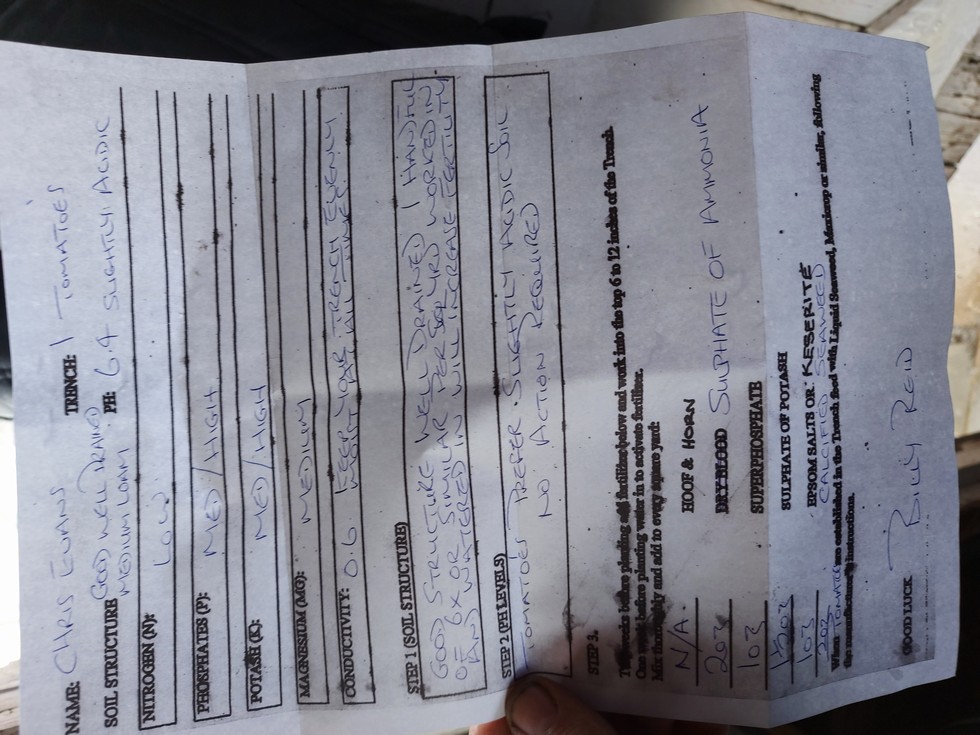 NAME: CHRIS EVANS TRENCH: 1 TOMATOES
SOIL STRUCTURE GOOD WELL DRAINED MEDIUM LOAM PH: 6.4 SLIGHTLY ACIDIC
NITROGEN (N): LOW
PHOSPHATES (P): MED/HIGH
POTASH (K): MED/HIGH
MAGNESIUM (MG): MEDIUM
CONDUCTIVITY: 0.6 KEEP YOUR TRENCH EVENLY
MOIST AT ALL TIMES
STEP 1 (SOIL STRUCTURE)
GOOD STRUCTURE WELL DRAINED 1 HANDFUL
OF 6X OR SIMILAR PER SQUARE YRD WORKED IN
AND WATERED IN WILL INCREASE FERTILITY
STEP 2 (PH LEVELS)
TOMATOES PREFER SLIGHTLY ACIDIC SOIL
NO ACTION REQUIRED
STEP 3.
Two weeks before planting add fertiliser below and work into the top 6 to 12 inches of the Trench.
One week before planting water in to activate fertiliser.
Mix thoroughly and add to every square yard:
N/A. HOOF & HORN
2oz DRY BLOOD SULPHATE OF AMMONIA
1oz SUPERPHOSPHATE
SULPHATE OF POTASH
1oz EPSOM SALTS OR: KESERITE
2oz CALCIFIED SEAWEED
When TOMATOES are established in the Trench food with Liquid Seaweed, Maxicrop or similar, following
the manufacturers instruction.
GOOD LUCK Billy REID